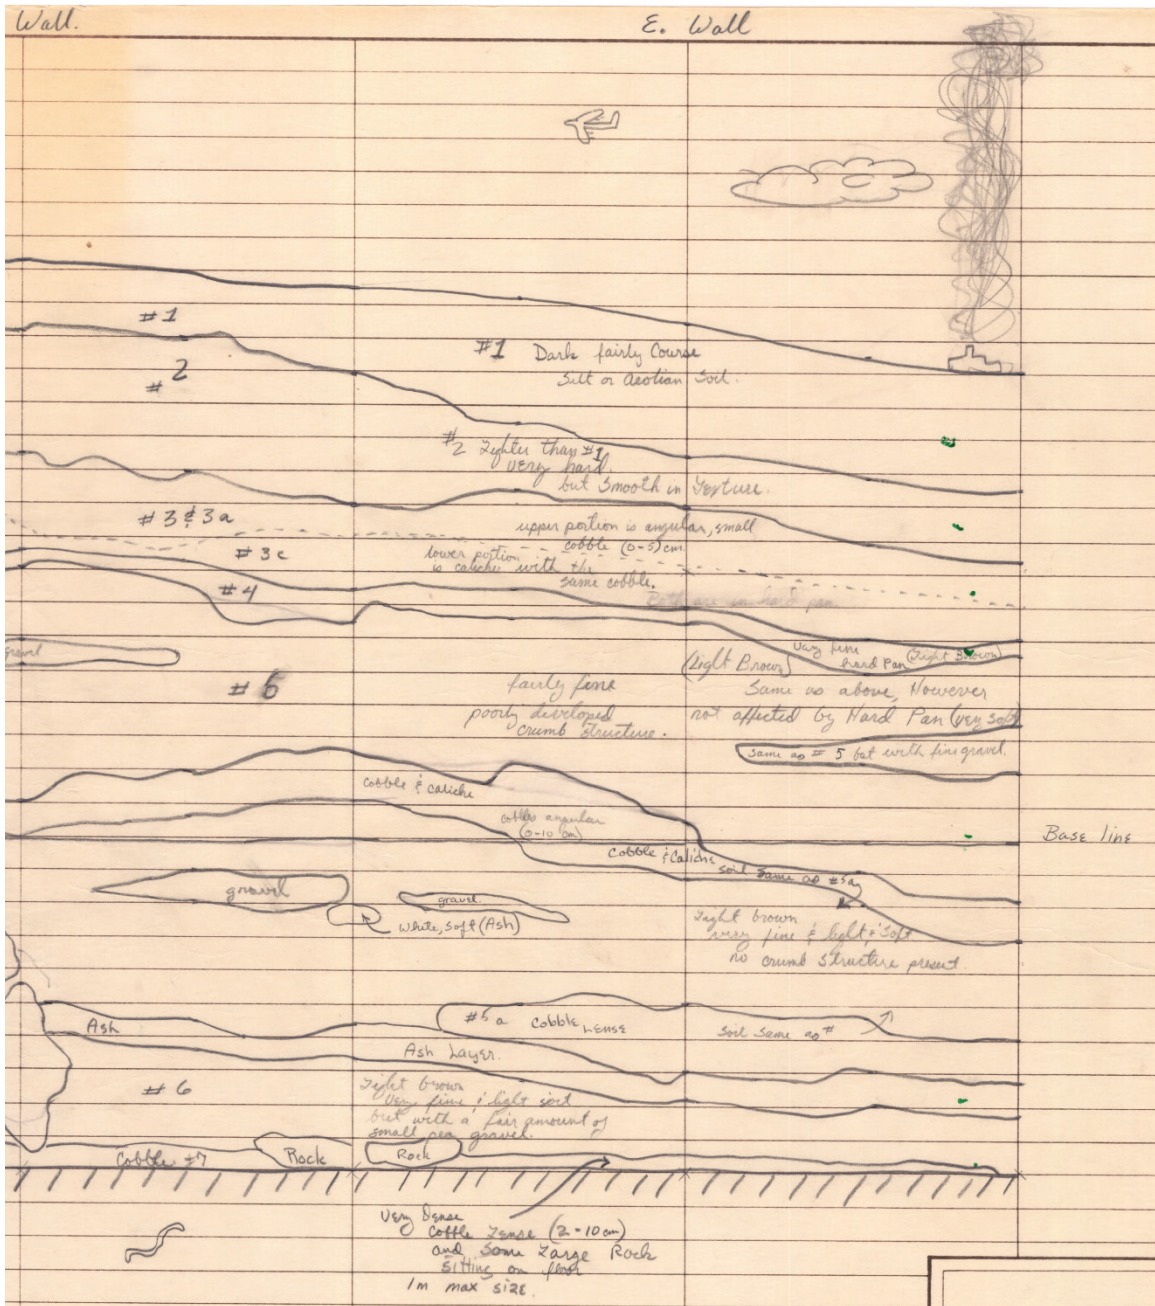 Wall.
E. Wall
#1
#1 Dark fairly Course
Silt or Aeolian Soil.
# 2
#2 Lighter than #1
very hard.
but Smooth in Texture.
#3 & 3a
upper portion is angular, small
cobble (0-5) cm.
#3c
lower portion
is caliche with the
same cobble.
Both are in hard pan.
#4
gravel
very fine
hard Pan
(Light Brown)
(Light Brown)
#5
fairly fine
poorly developed
crumb structure.
Same as above, However
not affected by Hard Pan (very soft)
Same as #5 but with fine gravel.
cobble & caliche
cobbles angular
(0-10 cm)
Base line
Cobble & Caliche
soil same as #5a
gravel
gravel.
White, Soft (Ash)
Light brown
very fine & light & soft
no crumb structure present.
Ash
#5a Cobble Lense
Soil Same as #
Ash Layer.
#6
Light brown
very fine & light soil
but with a fair amount of
small pea gravel.
Cobble #7
Rock
Rock
Very Dense
Cobble Lense (2-10cm)
and Some Large Rock
Sitting on floor
1m max size.